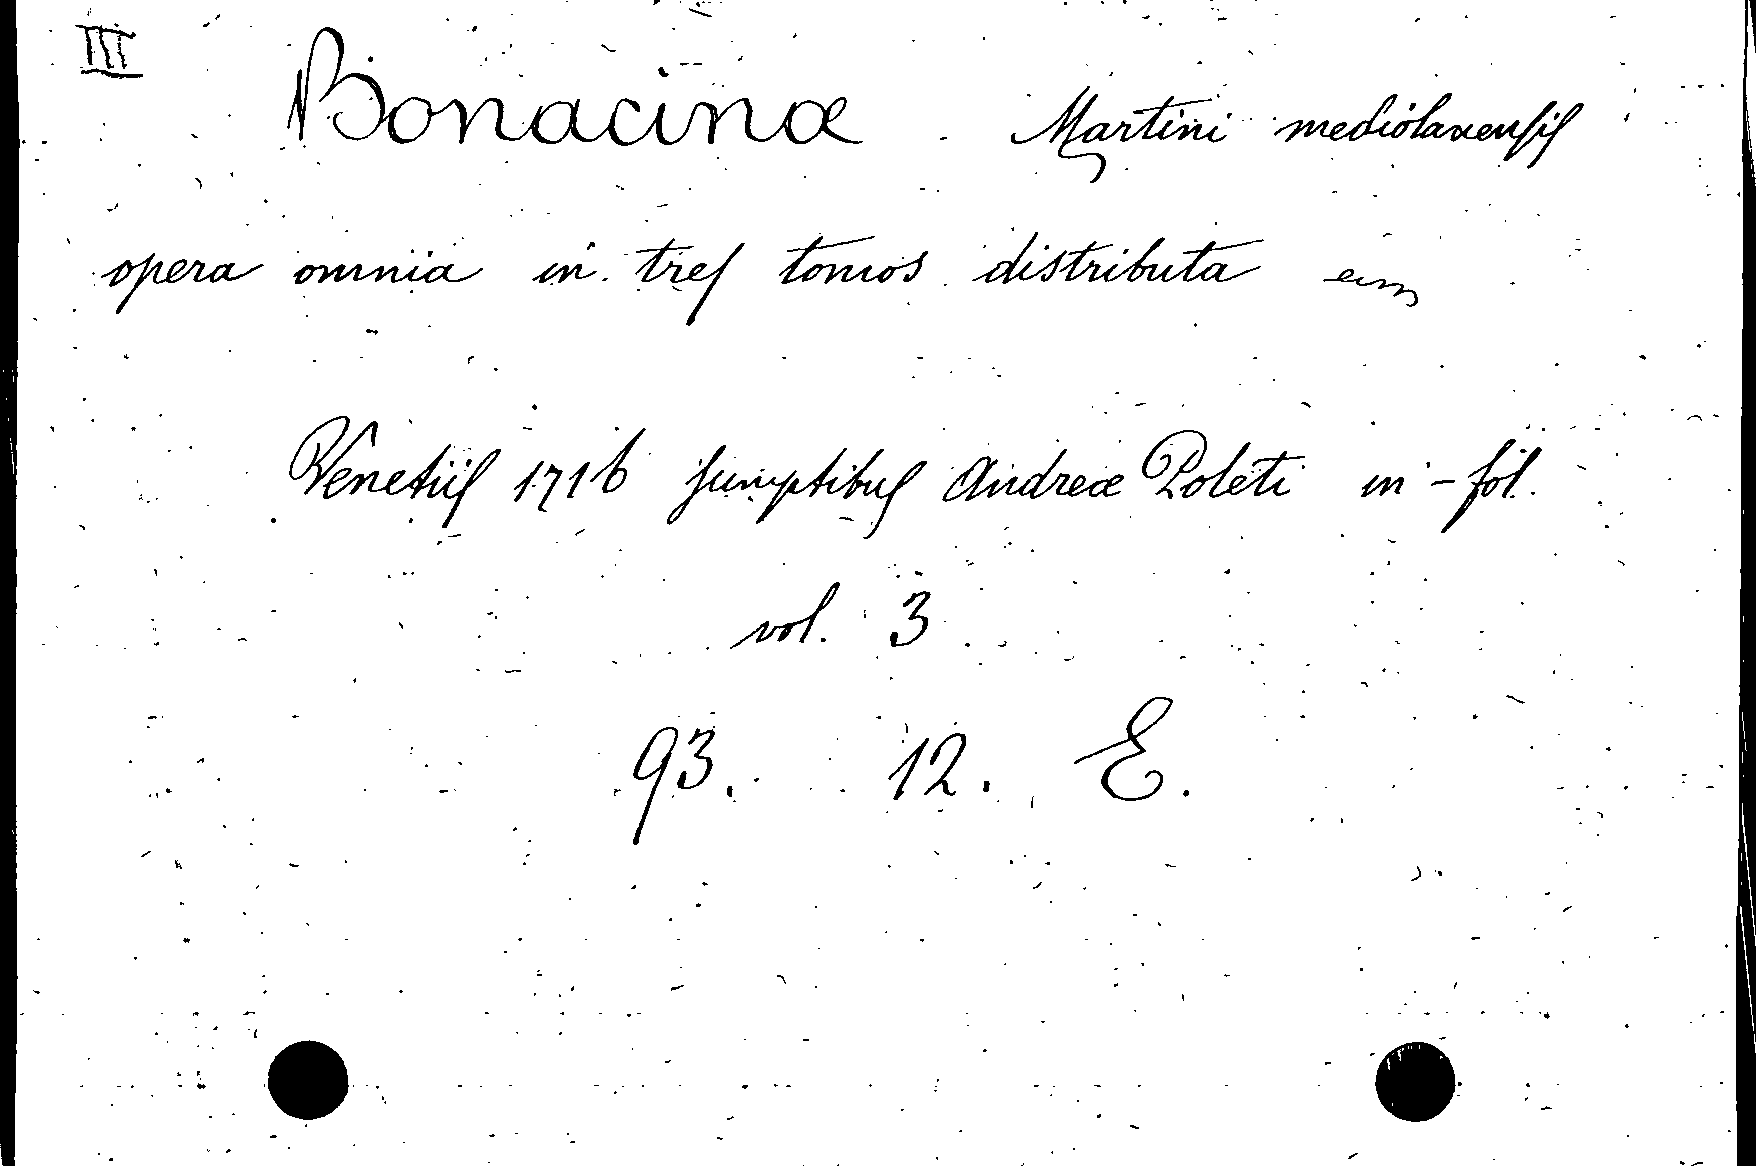 III
Bonacinæ Martini mediolanensis
opera omnia in tres tomos distributa
Venetiis 1716 sumptibus Andreæ Poleti in-fol.
vol. 3
93. 12. E.